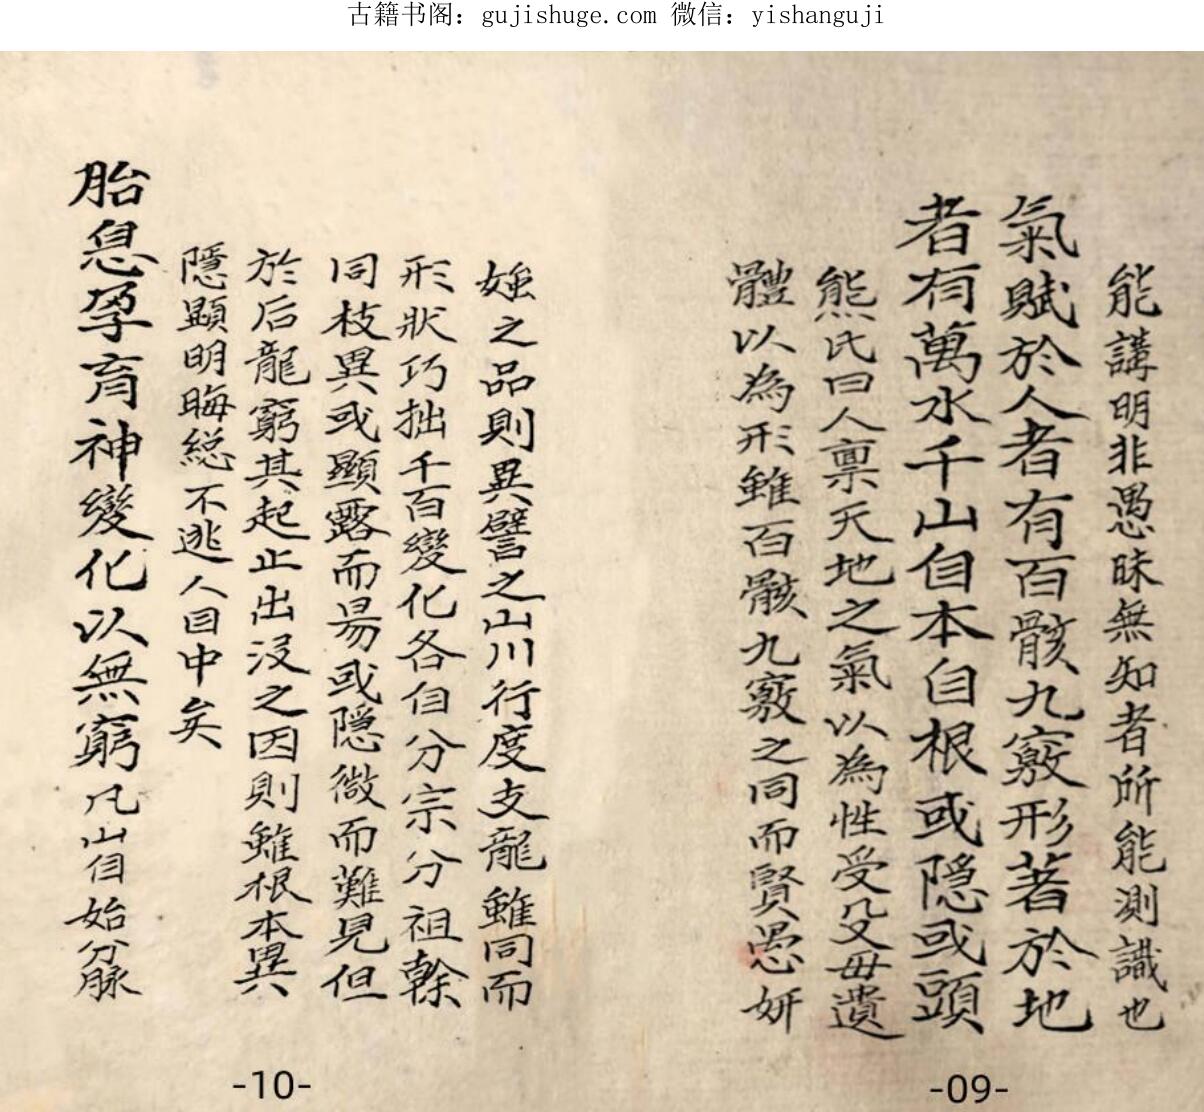 古籍书阁：gujishuge.com 微信：yishanguji
能講明非愚昧無知者所能測識也
氣賦於人者有百骸九竅形著於地
者有萬水千山自本自根或隱或頭
熊氏曰人禀天地之氣以為性受父母遺
體以為形雖百骸九竅之同而賢愚妍
媸之品則異譬之山川行度支龍雖同而
形狀巧拙千百變化各自分宗分祖榦
同枝異或顯露而易或隱微而難見但
於后龍窮其起止出沒之因則雖根本異
隱顯明晦総不逃人目中矣
胎息孕育神變化以無窮凡山自始分脈
-10-
-09-